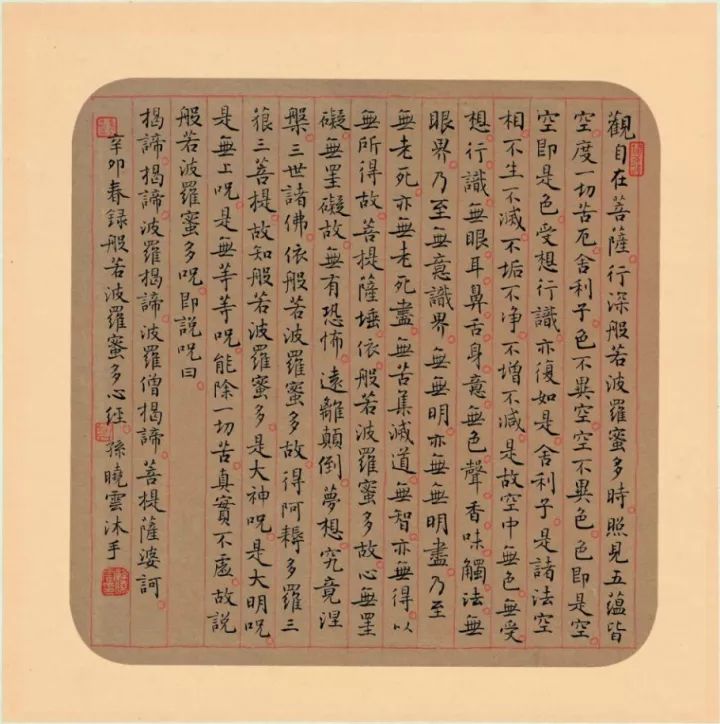 觀自在菩薩行深般若波羅蜜多時照見五蕴皆
空度一切苦厄舍利子色不異空空不異色色即是空
空即是色受想行識亦復如是舍利子是諸法空
相不生不滅不垢不净不增不減是故空中無色無受
想行識無眼耳鼻舌身意無色聲香味觸法無
眼界乃至無意識界無無明亦無無明盡乃至
無老死亦無老死盡無苦集滅道無智亦無得以
無所得故菩提薩埵依般若波羅蜜多故心無罣
礙無罣礙故無有恐怖遠離顛倒夢想究竟涅
槃三世諸佛依般若波羅蜜多故得阿耨多羅三
藐三菩提故知般若波羅蜜多是大神呪是大明呪
是無上呪是無等等呪能除一切苦真實不虛故說
般若波羅蜜多呪即說呪曰
揭諦揭諦波羅揭諦波羅僧揭諦菩提薩婆訶
辛卯春録般若波羅蜜多心經孫曉雲沐手